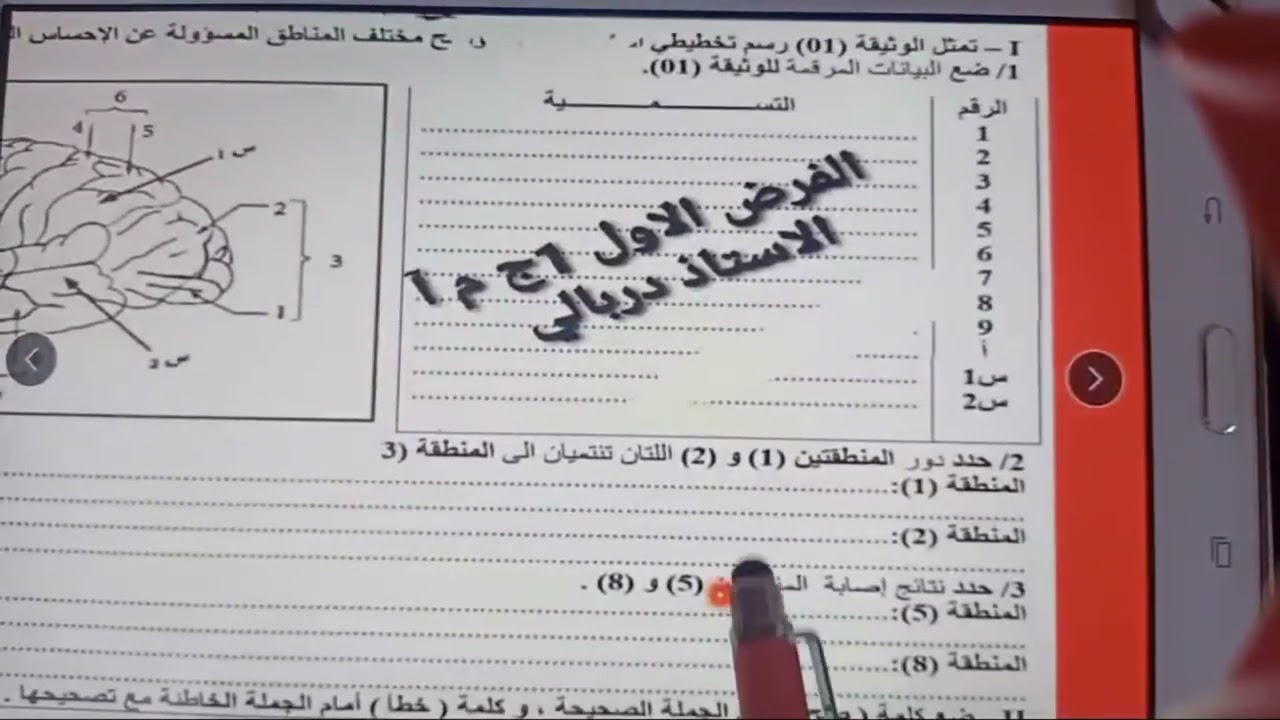 I – تمثل الوثيقة (01) رسم تخطيطي
ج مختلف المناطق المسؤولة عن الإحساس
1/ ضع البيانات المرقمة للوثيقة (01).
الرقم
التســـــمـــــية
1
2
3
4
5
6
7
8
9
أ
س1
س2
6
4
5
س 1
2
3
1
س 2
الفرض الاول 1ج م 1
الاستاذ دربالي
2/ حدد دور المنطقتين (1) و (2) اللتان تنتميان الى المنطقة (3
المنطقة (1):
المنطقة (2):
3/ حدد نتائج إصابة (5) و (8) .
المنطقة (5):
المنطقة (8):
II ضع كلمة ( الجملة الصحيحة ، و كلمة ( خطأ ) أمام الجملة الخاطئة مع تصحيحها .